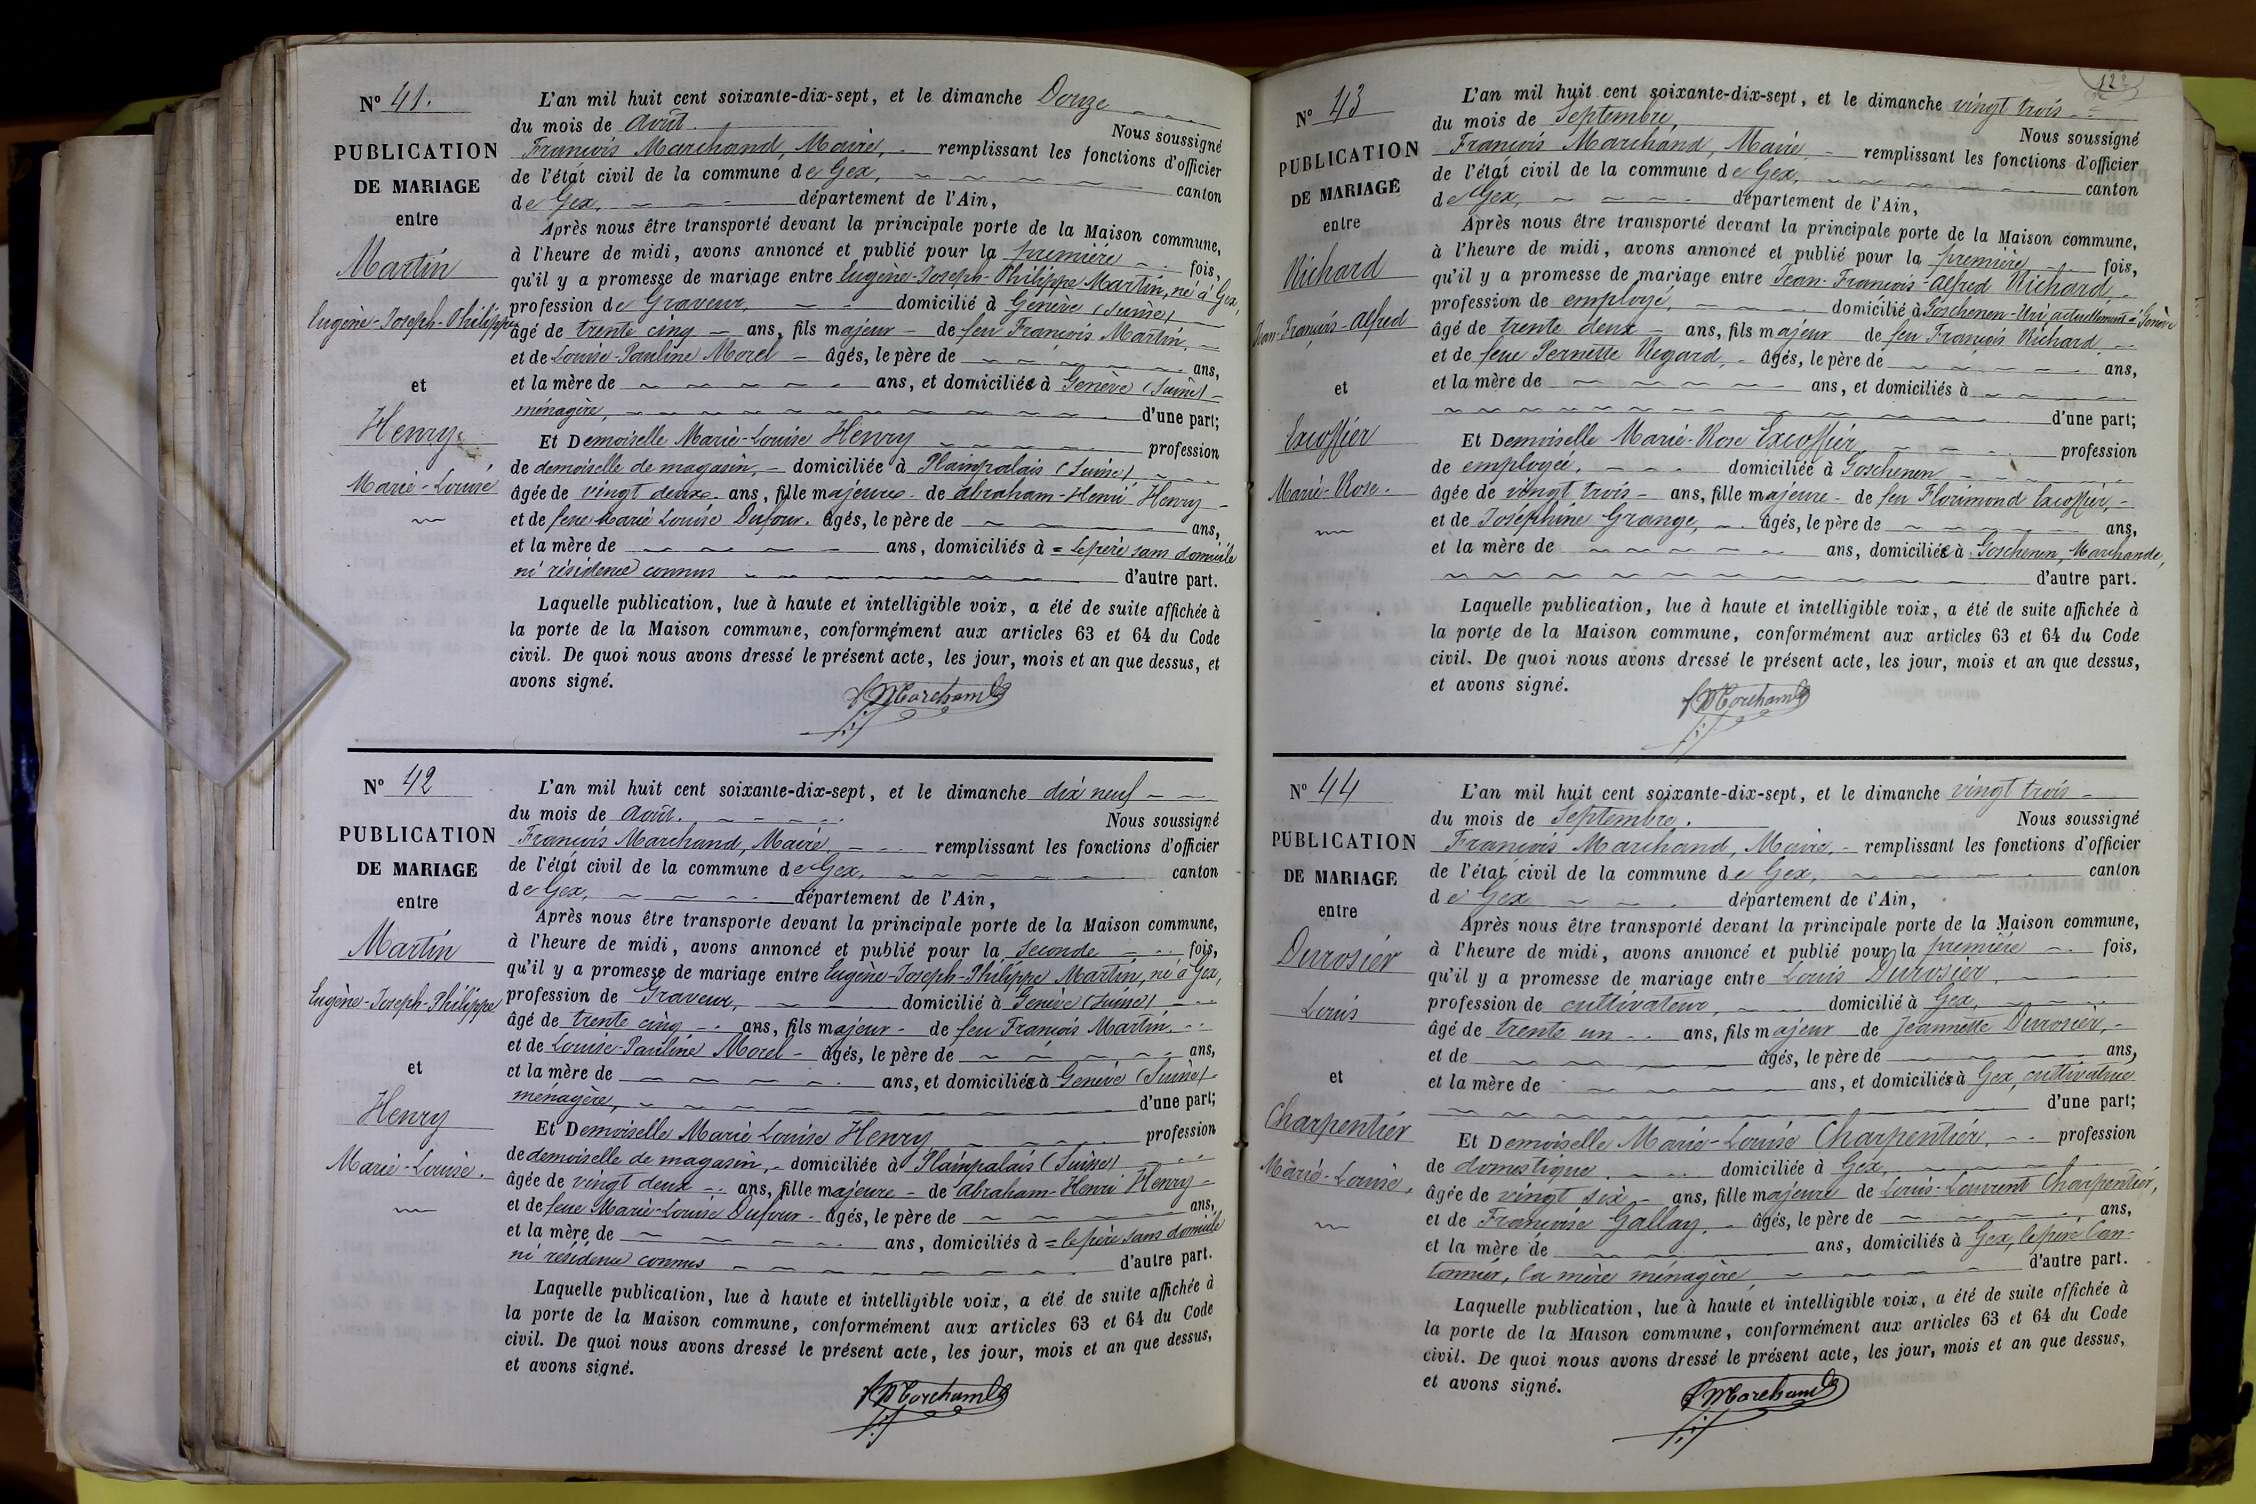 N° 41.
PUBLICATION
DE MARIAGE
entre
Martin
Eugène-Joseph-Philippe
et
Henry
Marie-Louise
L'an mil huit cent soixante-dix-sept, et le dimanche Douze
du mois de Août. Nous soussigné
François Marchand, Maire, remplissant les fonctions d'officier
de l'état civil de la commune de Gex, canton
de Gex, département de l'Ain,
Après nous être transporté devant la principale porte de la Maison commune,
à l'heure de midi, avons annoncé et publié pour la première fois,
qu'il y a promesse de mariage entre Eugène-Joseph-Philippe Martin, né à Gex,
profession de Graveur, domicilié à Genève (Suisse)
âgé de trente cinq ans, fils majeur de feu François Martin,
et de Louise-Pauline Morel âgés, le père de ans,
et la mère de ans, et domiciliés à Genève (Suisse)
ménagère, d'une part;
Et Demoiselle Marie-Louise Henry profession
de demoiselle de magasin, domiciliée à Plainpalais (Suisse)
âgée de vingt deux ans, fille majeure de Abraham-Henri Henry
et de feue Marie Louise Dufour. âgés, le père de ans,
et la mère de ans, domiciliés à = le père sans domicile
ni résidence connus d'autre part.
Laquelle publication, lue à haute et intelligible voix, a été de suite affichée à
la porte de la Maison commune, conformément aux articles 63 et 64 du Code
civil. De quoi nous avons dressé le présent acte, les jour, mois et an que dessus, et
avons signé.
f Marchand
N° 42
PUBLICATION
DE MARIAGE
entre
Martin
Eugène-Joseph-Philippe
et
Henry
Marie-Louise.
L'an mil huit cent soixante-dix-sept, et le dimanche dix neuf
du mois de Août. Nous soussigné
François Marchand, Maire, remplissant les fonctions d'officier
de l'état civil de la commune de Gex, canton
de Gex, département de l'Ain,
Après nous être transporte devant la principale porte de la Maison commune,
à l'heure de midi, avons annoncé et publié pour la seconde fois,
qu'il y a promesse de mariage entre Eugène-Joseph-Philippe Martin, né à Gex,
profession de Graveur, domicilié à Genève (Suisse)
âgé de trente cinq ans, fils majeur de feu François Martin
et de Louise-Pauline Morel âgés, le père de ans,
et la mère de ans, et domiciliés à Genève (Suisse)
ménagère, d'une part;
Et Demoiselle Marie Louise Henry profession
de demoiselle de magasin, domiciliée à Plainpalais (Suisse)
âgée de vingt deux ans, fille majeure de Abraham-Henri Henry
et de feue Marie-Louise Dufour. âgés, le père de ans,
et la mère de ans, domiciliés à = le père sans domicile
ni résidence connus d'autre part.
Laquelle publication, lue à haute et intelligible voix, a été de suite affichée à
la porte de la Maison commune, conformément aux articles 63 et 64 du Code
civil. De quoi nous avons dressé le présent acte, les jour, mois et an que dessus,
et avons signé.
f Marchand
N° 43
PUBLICATION
DE MARIAGE
entre
Richard
Jean-François-Alfred
et
Excoffier
Marie-Rose.
L'an mil huit cent soixante-dix-sept, et le dimanche vingt trois
du mois de Septembre Nous soussigné
François Marchand, Maire, remplissant les fonctions d'officier
de l'état civil de la commune de Gex, canton
de Gex, département de l'Ain,
Après nous être transporté devant la principale porte de la Maison commune,
à l'heure de midi, avons annoncé et publié pour la première fois,
qu'il y a promesse de mariage entre Jean-François-Alfred Richard,
profession de employé, domicilié à Goschenen-Uri actuellement à Genève
âgé de trente deux ans, fils majeur de feu François Richard
et de feue Pernette Rigard, âgés, le père de ans,
et la mère de ans, et domiciliés à
d'une part;
Et Demoiselle Marie-Rose Excoffier profession
de employée, domiciliée à Goschenen
âgée de vingt trois ans, fille majeure de feu Florimond Excoffier,
et de Joséphine Grange, âgés, le père de ans,
et la mère de ans, domiciliés à Goschenen, Marchande,
d'autre part.
Laquelle publication, lue à haute et intelligible voix, a été de suite affichée à
la porte de la Maison commune, conformément aux articles 63 et 64 du Code
civil. De quoi nous avons dressé le présent acte, les jour, mois et an que dessus,
et avons signé.
f Marchand
N° 44
PUBLICATION
DE MARIAGE
entre
Durosier
Louis
et
Charpentier
Marie-Louise,
L'an mil huit cent soixante-dix-sept, et le dimanche vingt trois
du mois de Septembre. Nous soussigné
François Marchand, Maire, remplissant les fonctions d'officier
de l'état civil de la commune de Gex, canton
de Gex département de l'Ain,
Après nous être transporté devant la principale porte de la Maison commune,
à l'heure de midi, avons annoncé et publié pour la première fois,
qu'il y a promesse de mariage entre Louis Durosier,
profession de cultivateur, domicilié à Gex,
âgé de trente un ans, fils majeur de Jeannette Durosier,
et de âgés, le père de ans,
et la mère de ans, et domiciliés à Gex, cultivatrice
d'une part;
Et Demoiselle Marie-Louise Charpentier, profession
de domestique, domiciliée à Gex
âgée de vingt six ans, fille majeure de Louis-Laurent Charpentier,
et de Françoise Gallay, âgés, le père de ans,
et la mère de ans, domiciliés à Gex, le père Can-
tonnier, la mère ménagère, d'autre part.
Laquelle publication, lue à haute et intelligible voix, a été de suite affichée à
la porte de la Maison commune, conformément aux articles 63 et 64 du Code
civil. De quoi nous avons dressé le présent acte, les jour, mois et an que dessus,
et avons signé.
f Marchand